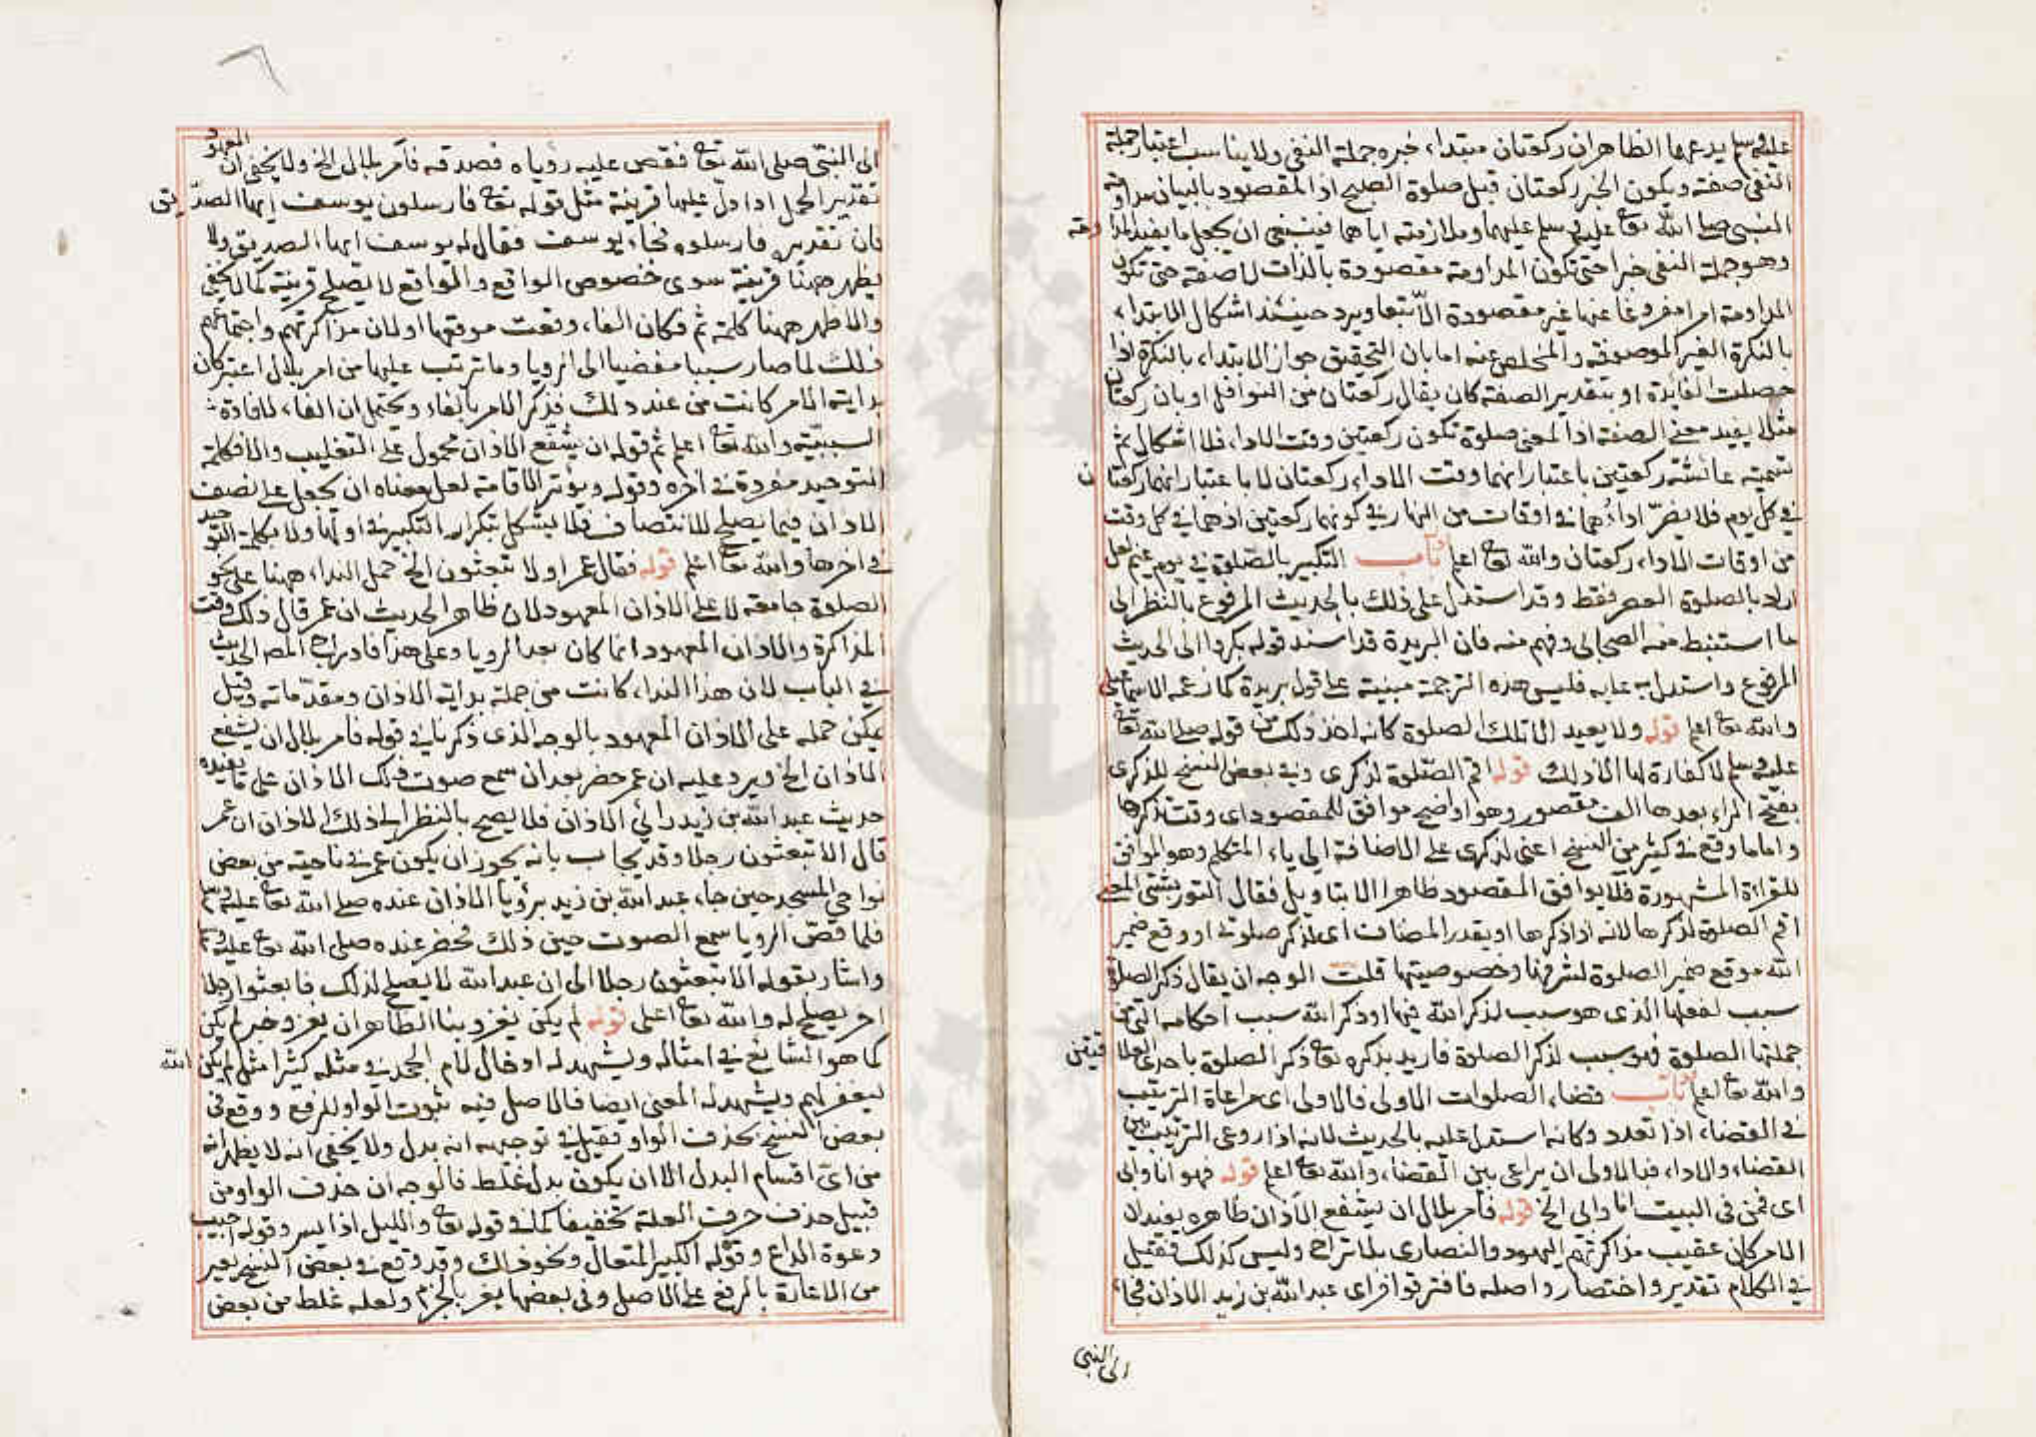 عليه وسلم يدعهما الظاهر ان ركعتان مبتداء خبره جملة النفي ولا يناسب اعتبار جملة
النفي صفته ويكون الخبر ركعتان قبل صلوة الصبح اذ المقصود بالبيان مداومة
النبي صلى الله تعا عليه وسلم عليهما وملازمته اياهما فينبغي ان يجعل ما يفيد المداومة
وهو جملة النفي خبرا حتى تكون المداومة مقصودة بالذات لا صفة حتى تكون
المداومة امرا مفروغا عنها غير مقصودة الا تبعا ويرد حينئذ اشكال الابتداء
بالنكرة الغير الموصوفة والمخلص عنه اما بان التحقيق جواز الابتداء بالنكرة اذا
حصلت الفايدة او بتقدير الصفة كان يقال ركعتان من النوافل او بان ركعتان
مثلا يفيد معنى الصفة اذ المعنى صلوة تكون ركعتين وقت الاداء فلا اشكال ثم
تسمية عائشة ركعتين باعتبار انهما وقت الاداء ركعتان لا باعتبار انهما ركعتان
في كل يوم فلا يضر اداؤهما في اوقات من النهار في كونهما ركعتين اذ هما في كل وقت
من اوقات الاداء ركعتان والله تعا اعلم باب التكبير بالصلوة في يوم غيم لعل
اراد بالصلوة العصر فقط وقد استدل على ذلك بالحديث المرفوع بالنظر الى
ما استنبط منه الصحابي وفهم منه فان البريدة قد اسند قوله بكروا الى الحديث
المرفوع واستدل به عليه فليس هذه الترجمة مبنية على قول بريدة كما زعمه الاسماعيلي
والله تعا اعلم قوله ولا يعيد الا تلك الصلوة كانه اخذ ذلك من قوله صلى الله تعا
عليه وسلم لا كفارة لها الا ذلك قوله اقم الصلوة لذكرى وفي بعض النسخ للذكرى
بفتح الراء بعدها الف مقصور وهو اوضح موافق للمقصود اى وقت تذكرها
واما ما وقع في كثير من النسخ اعنى لذكرى على الاضافة الى ياء المتكلم وهو الموافق
للقراءة المشهورة فلا يوافق المقصود ظاهرا الا بتاويل فقال التوربشتي المعنى
اقم الصلوة لذكرها لانه اذا ذكرها او يقدر المضاف اى لذكر صلوتى او وقع ضمير
الله موقع ضمير الصلوة لشرفها وخصوصيتها قلت الوجه ان يقال ذكر الصلوة
سبب لفعلها الذى هو سبب لذكر الله فيها او ذكر الله سبب احكامه التى من
جملتها الصلوة فهو سبب لذكر الصلوة فاريد بذكره تعا ذكر الصلوة باحدى العلاقتين
والله تعا اعلم باب قضاء الصلوات الاولى فالاولى اى مراعاة الترتيب
في القضاء اذا تعدد وكانه استدل عليه بالحديث لانه اذا روعى الترتيب بين
القضاء والاداء فبالاولى ان يراعى بين القضاء والله تعا اعلم قوله فهو انا وابى
اى فمن فى البيت انا وابى الخ قوله فامر بلال ان يشفع الاذان ظاهره يفيد ان
الامر كان عقيب مذاكرتهم اليهود والنصارى بلا تراخ وليس كذلك فقيل
في الكلام تقدير واختصار واصله فافترقوا فراى عبد الله بن زيد الاذان فجاء
الى النبى
الى النبى صلى الله تعا فقص عليه رؤياه فصدقه فامر بلال الخ ولا يخفى ان المعهود
تقدير الجمل اذا دل عليها قرينة مثل قوله تعا فارسلون يوسف ايها الصديق
فان تقديره فارسلوه فجاء يوسف فقال له يوسف ايها الصديق ولا
يظهر ههنا قرينة سوى خصوص الواقع والواقع لا يصلح قرينة كما لا يخفى
والاظهر ههنا كلمة ثم فكان الفاء وقعت موقعها او لان مذاكرتهم واجتماعهم
ذلك لما صار سببا مفضيا الى الرويا وما ترتب عليها من امر بلال اعتبر كان
بداية الامر كانت من عند ذلك فذكر الامر بالفاء ويحتمل ان الفاء لافادة
السببية والله تعا اعلم ثم قوله ان يشفع الاذان محمول على التغليب والا فكلمة
التوحيد مفردة في اخره وقوله ويؤتر الاقامة لعل معناه ان يجعل على نصف
الاذان فيما يصلح للانتصاف فلا يشكل بتكرار التكبير في اولها ولا بكلمة التوحيد
في اخرها والله تعا اعلم قوله فقال عمر اولا تبعثون الخ حمل النداء ههنا على نحو
الصلوة جامعة لا على الاذان المعهود لان ظاهر الحديث ان عمر قال ذلك وقت
المذاكرة والاذان المعهود انما كان بعد الرويا وعلى هذا فادراج المص الحديث
في الباب لان هذا النداء كانت من جملة بداية الاذان ومقدماته وقيل
يمكن حمله على الاذان المعهود بالوجه الذى ذكرنا في قوله فامر بلال ان يشفع
الاذان الخ ويرد عليه ان عمر حضر بعد ان سمع صوت ذلك الاذان على ما يفيده
حديث عبد الله بن زيد رائي الاذان فلا يصح بالنظر الى ذلك الاذان ان عمر
قال الا تبعثون رجلا وقد يجاب بانه يجوز ان يكون عمر في ناحية من بعض
نواحي المسجد حين جاء عبد الله بن زيد برؤيا الاذان عنده صلى الله تعا عليه وسلم
فلما قص الرويا سمع الصوت حين ذلك فحضر عنده صلى الله تعا عليه وسلم
واشار بقوله الا تبعثون رجلا الى ان عبد الله لا يصلح لذلك فابعثوا رجلا
اخر يصلح له والله تعا اعلى قوله لم يكن يغزو بنا الظاهر ان يغزو خبر لم يكن
كما هو الشايع في امثاله ويشهد له ادخال لام الجحد في مثله كثيرا مثل لم يكن الله
ليغفر لهم ويشهد له المعنى ايضا فالاصل فيه ثبوت الواو للرفع ووقع فى
بعض النسخ بحذف الواو فقيل في توجيهه انه بدل ولا يخفى انه لا يظهر انه
من اى اقسام البدل الا ان يكون بدل غلط فالوجه ان حذف الواو من
قبيل حذف حرف العلة تخفيفا كما في قوله تعا والليل اذا يسر وقوله اجيب
دعوة الداع وقوله الكبير المتعال ونحو ذلك وقد وقع في بعض النسخ يغير
من الاغارة بالرفع على الاصل وفى بعضها يغر بالجزم ولعله غلط من بعض